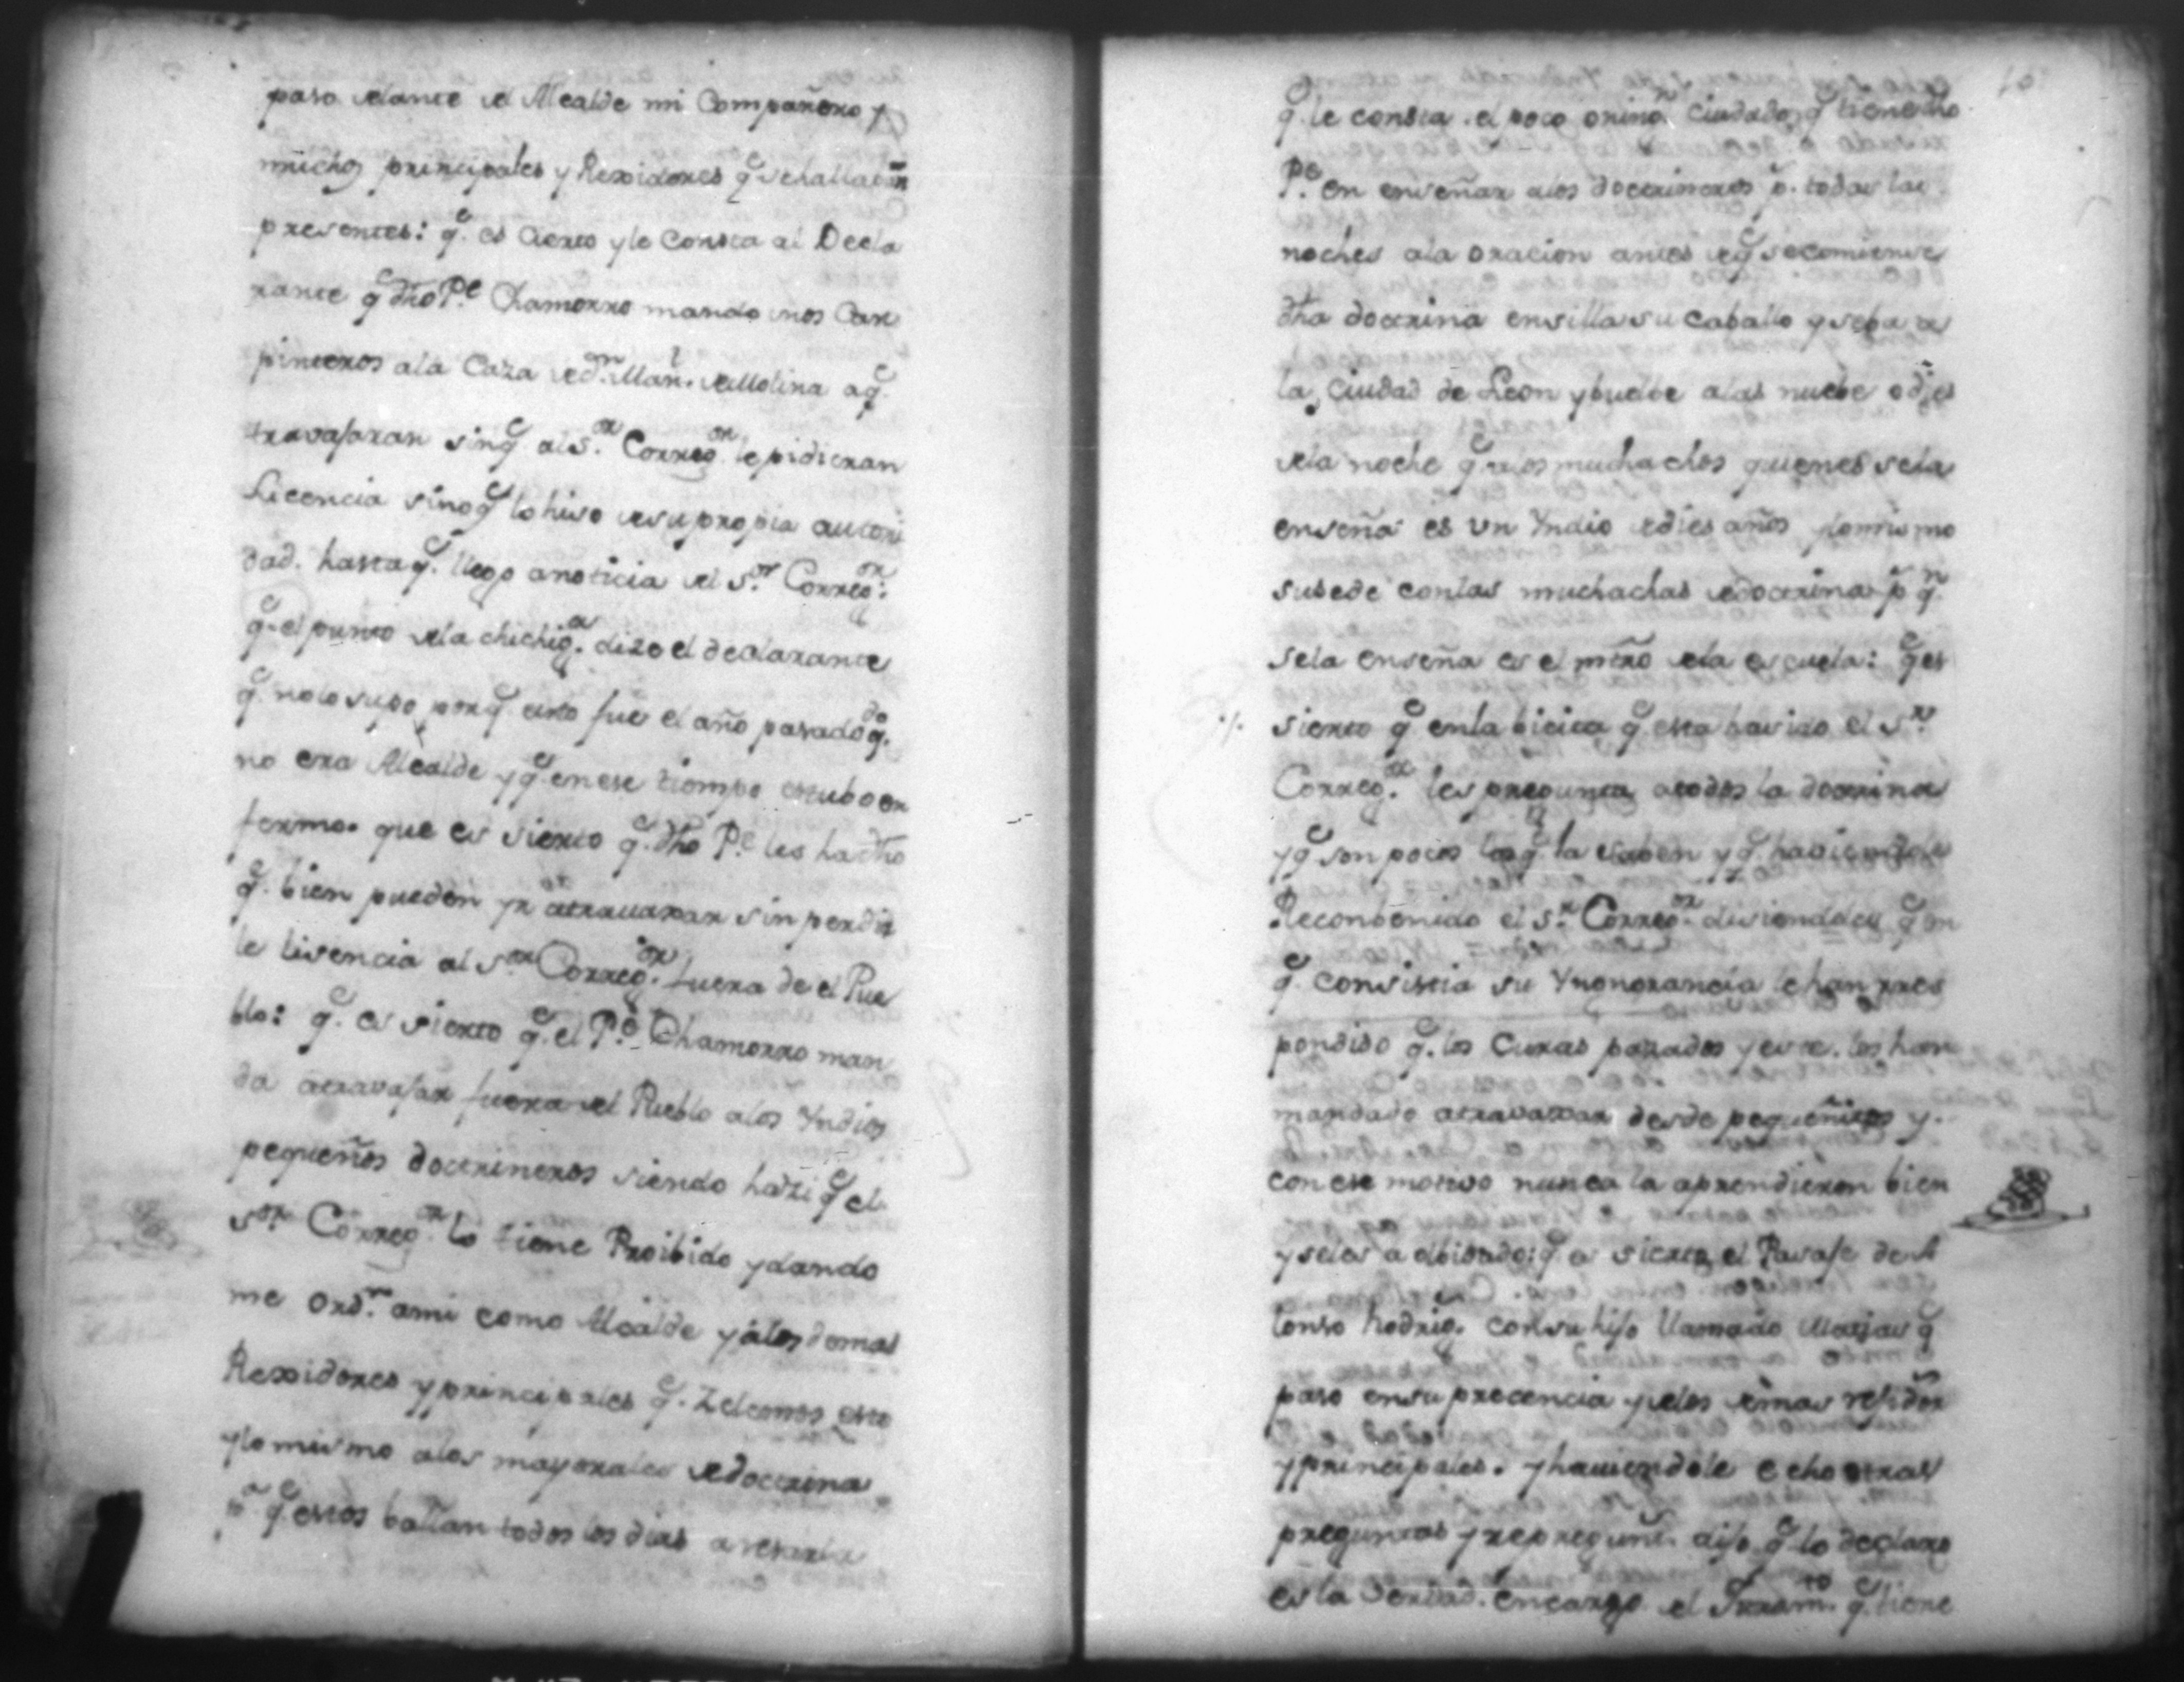 paso delante del Alcalde mi Compañero y
muchos principales y Rexidores q.e se hallaron
presentes: q.e es cierto y le Consta al Decla
rante q.e dho P.e Chamorro mando unos Car
pinteros a la Caza de d.n Man.l de Molina a q.e
travajaran sin q.e al S.or Correg.or le pidieran
Licencia sino q.e lo hiso de su propia autori
dad. hasta q.e llego a noticia del S.or Correg.or:
q.e el punto de la chichig.a dize el declarante
q.e no lo supo por q.e esto fue el año pasado q.do
no era Alcalde y q.e en ese tiempo estubo en
fermo. que es sierto q.e dho P.e les ha dho
q.e bien pueden yr a travaxar sin perdir
le lisencia al S.or Correg.or fuera de el Pue
blo: q.e es sierto q.e el P.e Chamorro man
da a travajar fuera del Pueblo a los Yndios
pequeños doctrineros siendo hazi q.e el
S.or Correg.or lo tiene Proibido y dando
me ord.n a mi como Alcalde y a los demas
Rexidores y principales q.e Zelemos esto
y lo mismo a los mayorales de doctrina
p.a q.e estos ballan todos los dias a resarla
q.e le consta el poco o nino ciudado q.e tiene dho
P.e en enseñar a los doctrineros p. todas las
noches a la oracion antes de q.e se comiense
dha doctrina ensilla su caballo y se ba a
la Ciudad de Leon y buelbe a las nuebe o dies
de la noche q.e a los muchachos quienes se la
enseña es un Yndio de dies años y lo mismo
susede con las muchachas de doctrina p. q.n
se la enseña es el mtro de la escuela: q.e es
sierto q.e en la bicita q.e esta hasido el S.or
Correg.or les pregunta a todos la doctrina
y q.e son pocos los q.e la saben y q.e haviendole
Recombenido el S.or Correg.or disiendoles q.e en
q.e consistia su Ynonorancia le han rres
pondido q.e los Curas pasados y este. los han
mandado a travaxar desde pequeñitos y.
con ese motivo nunca la aprendieron bien
y se les a olbidado: q.e es sierto el Pasaje de A
lonso Rodrig. con su hijo llamado Matias q.e
paso en su precencia y de los demas rejidor
y principales. y haviendole echo otras
preguntas y repregunt. dijo q.e lo declaro
es la Verdad. en cargo del Juram.to q.e tiene